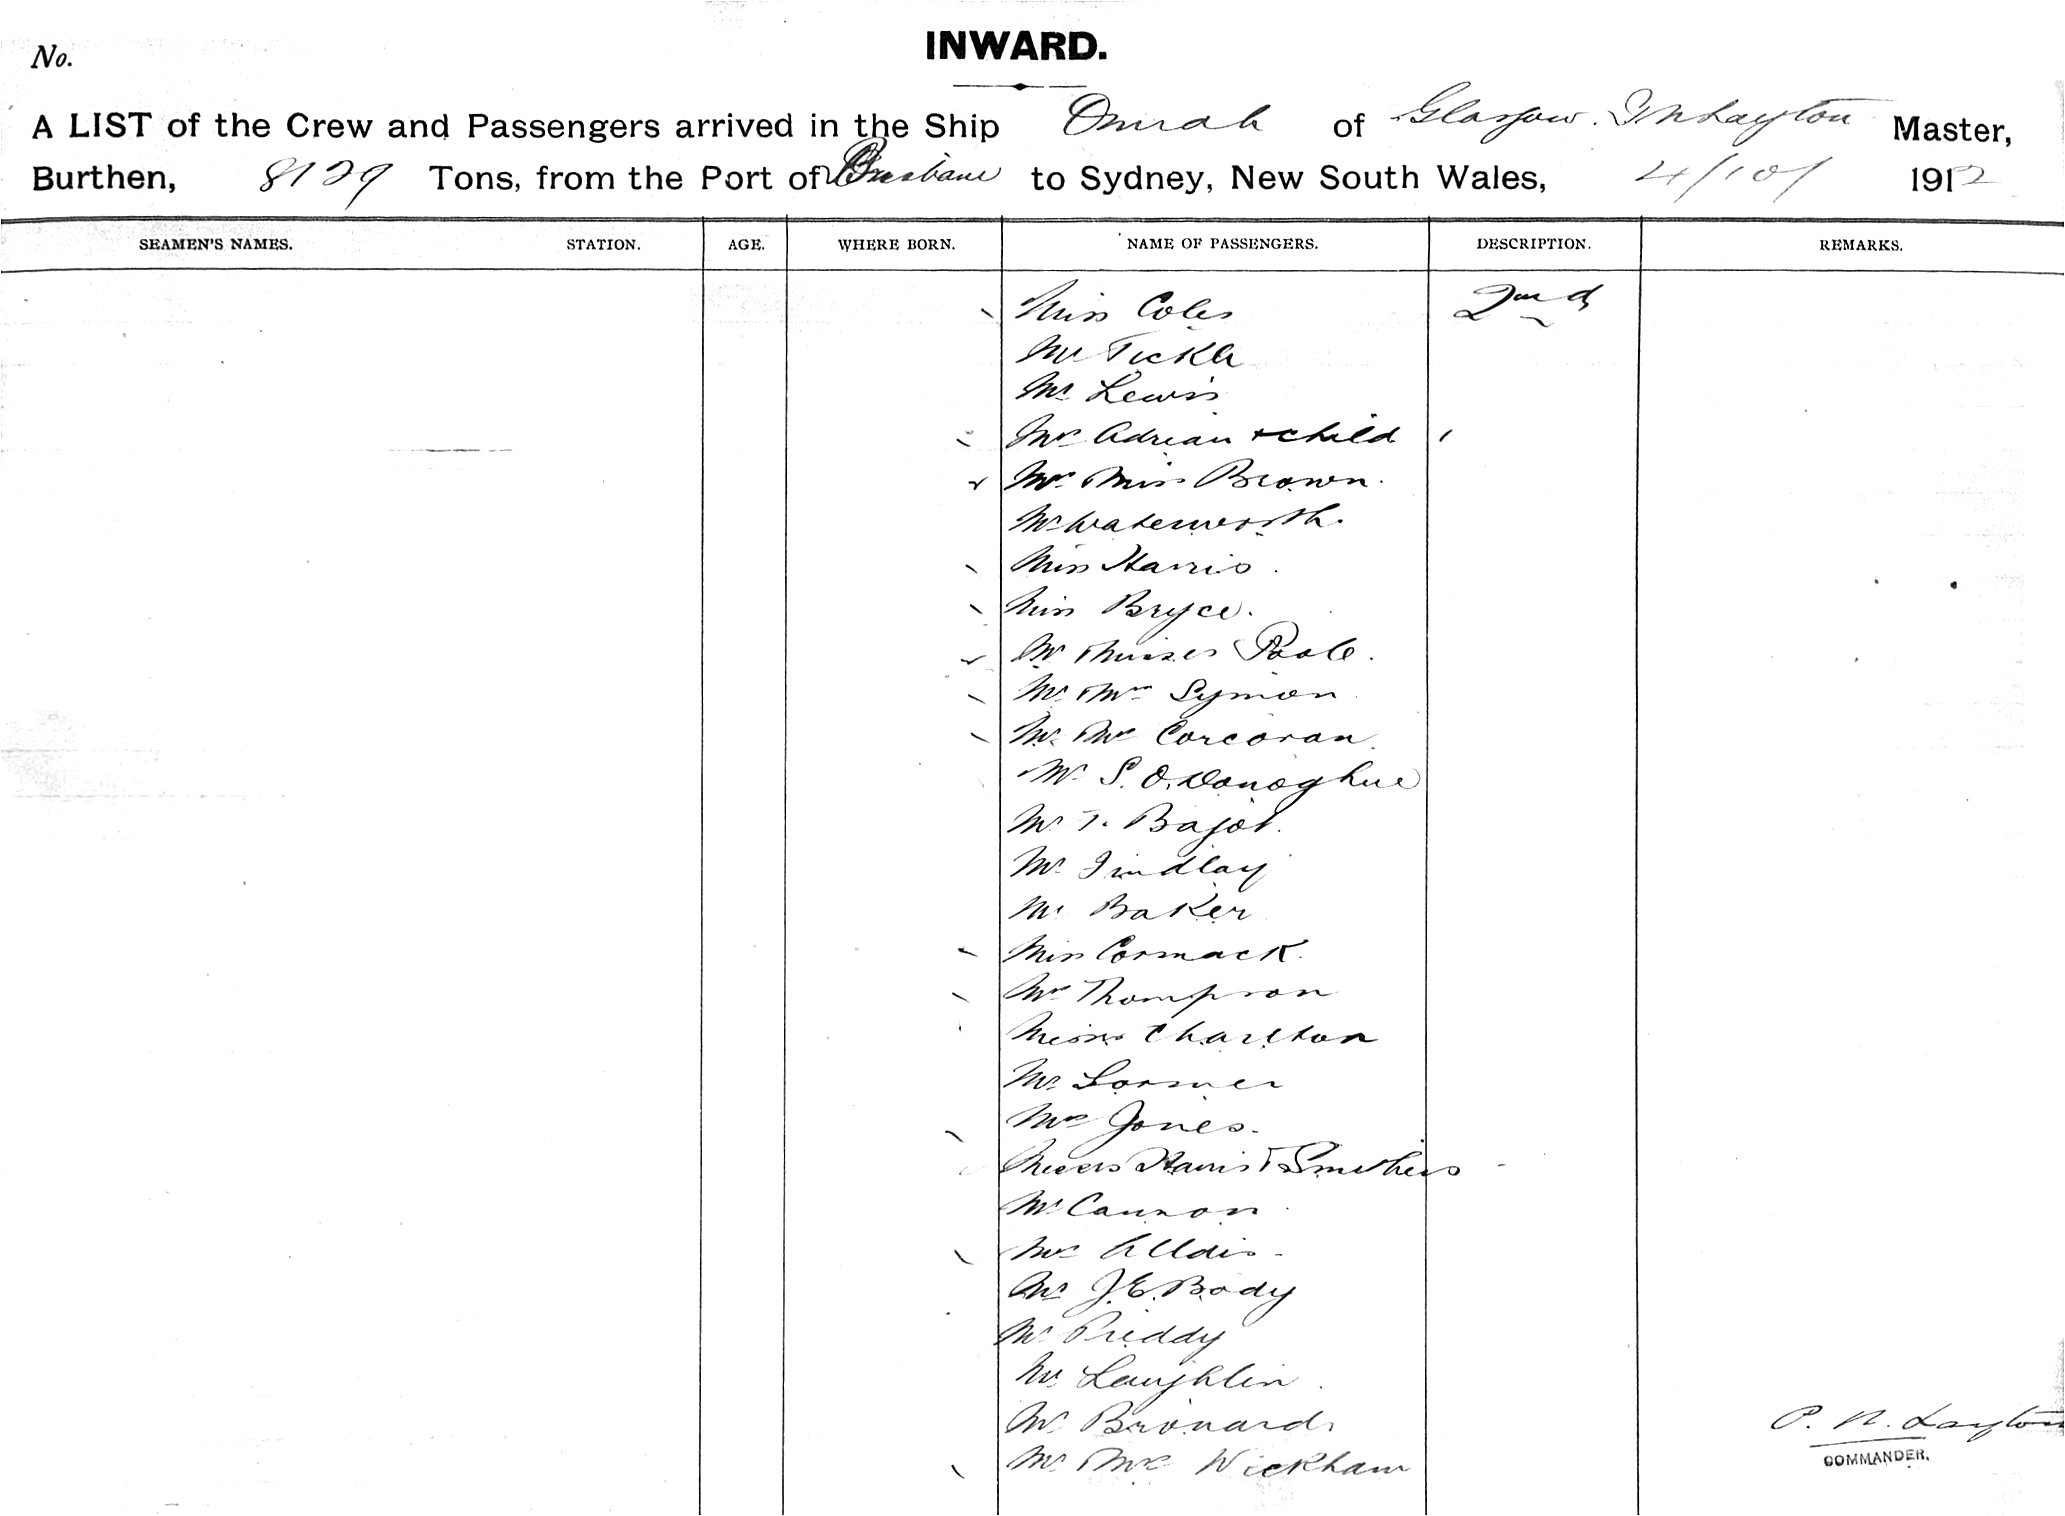 No.
INWARD.
A LIST of the Crew and Passengers arrived in the Ship Omrah of Glasgow. Layton Master,
Burthen, 8129 Tons, from the Port of Brisbane to Sydney, New South Wales, 4/10/ 1912
SEAMEN'S NAMES. STATION. AGE. WHERE BORN. NAME OF PASSENGERS. DESCRIPTION. REMARKS.
Miss Coles 2nd
Mr Tickle
Mr Lewis
Mrs Adrian + child
Mr Miss Brown.
Mr Waterworth.
Miss Harris.
Miss Bryce.
Mr Misses Poole.
Mr Mrs Symon
Mr Mrs Corcoran.
Mr S. O. Donoghue
Mr T. Bajot.
Mr Findlay
Mr Baker
Miss Cormack.
Mrs Thompson
Charlton
Mr
Mrs Jones.
Harris + Smithers
Mr Cannon
Mrs Alldis.
Mr J. E. Body
Mr Priddy
Mr Laughlin.
Mr
P. N. Layton
Mr Mrs Wickham
COMMANDER.